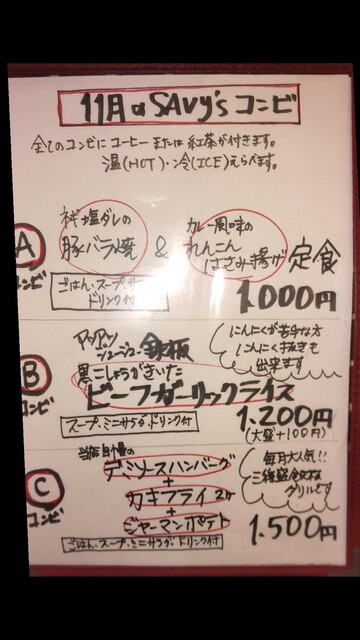 11月のSAVy'sコンビ
全てのコンビにコーヒーまたは紅茶が付きます。
温(HOT)・冷(ICE)えらべます。
A
コンビ
ネギ塩ダレの
豚バラ焼
&
カレー風味の
れんこん
はさみ揚げ
定食
ごはん・スープ・サ
ドリンク付
1.000円
B
コンビ
アツアツ
ジュージュー鉄板
黒こしょうがきいた
ビーフガーリックライス
にんにくが苦手な方
にんにく抜きも
出来ます
スープ・ミニサラダ・ドリンク付
1.200円
(大盛+100円)
C
コンビ
当店自慢の
デミソースハンバーグ
+
カキフライ2ケ
+
ジャーマンポテト
毎月大人気!!
グリルです
ごはん・スープ・ミニサラダ・ドリンク付
1.500円